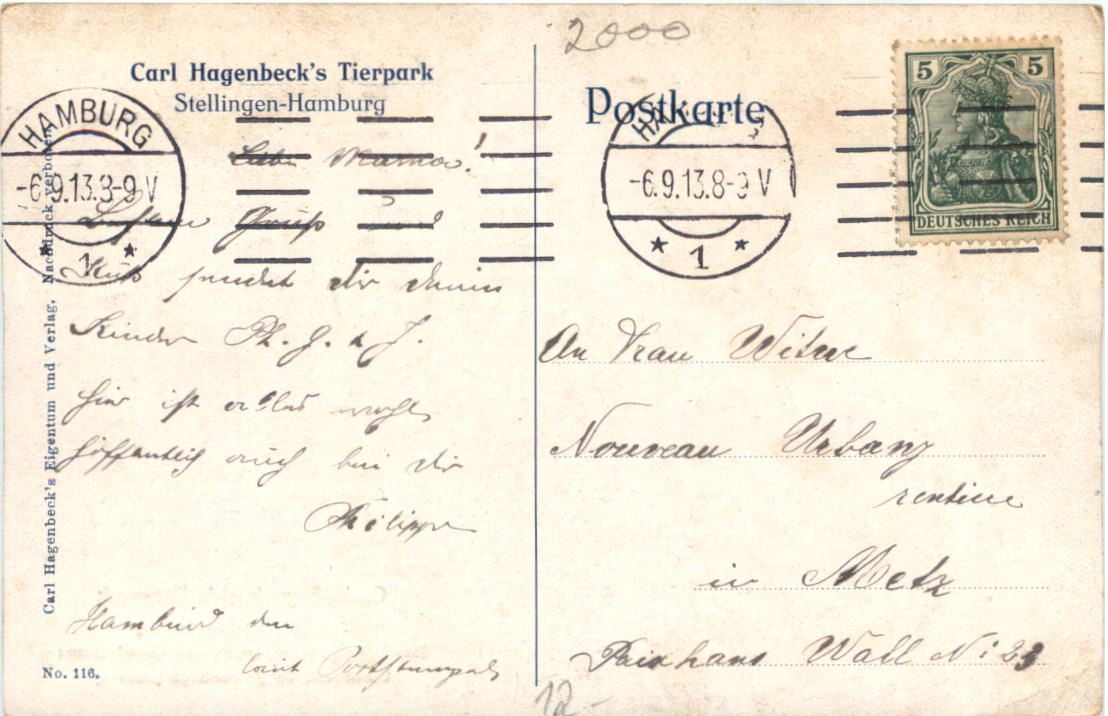 2000
Carl Hagenbeck's Tierpark
Stellingen-Hamburg
HAMBURG
-6.9.13.8-9 V
* 1 *
Liebe Mama!
Gruß und
Kuß sendet dir deine
Kinder Ph. J. & J.
hier ist alles wohl
hoffentlich auch bei dir
Philipp
Hamburg den
laut Poststempel
Carl Hagenbeck's Eigentum und Verlag. Nachdruck verboten.
No. 116.
Postkarte
-6.9.13.8-9 V
* 1 *
5 5
DEUTSCHES REICH
An Frau Witwe
Nouveau Urbany
rentiere
in Metz
Paixhans Wall No 23
12-